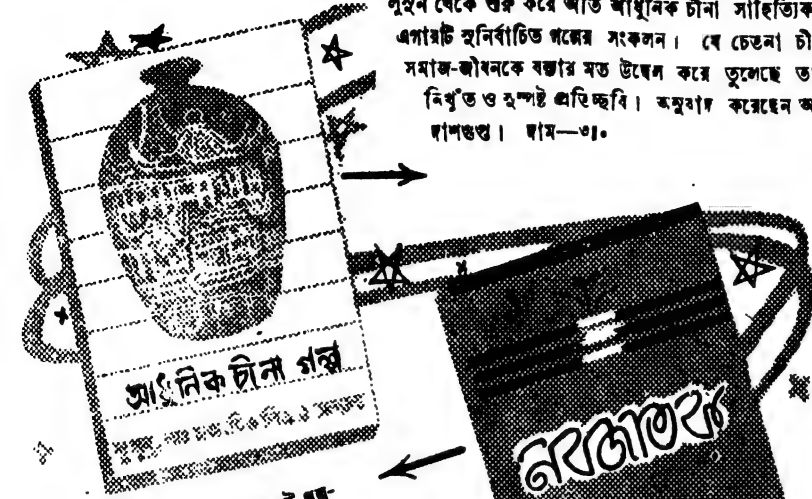 লুসুন থেকে শুরু করে অতি আধুনিক চীনা সাহিত্যিক
এগারটি সুনির্বাচিত গল্পের সংকলন। যে চেতনা চী
সমাজ-জীবনকে বন্যার মত উদ্বেল করে তুলেছে ত
নিখুঁত ও সুস্পষ্ট প্রতিচ্ছবি। অনুবাদ করেছেন অ
দাশগুপ্ত। দাম—৩৷৹
আধুনিক চীনা গল্প
নবজাতক